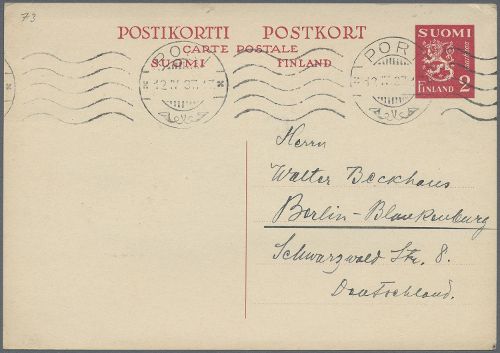 73
POSTIKORTTI POSTKORT
CARTE POSTALE
SUOMI FINLAND
SUOMI
FINLAND 2
Herrn
Walter Beckhaus
Berlin-Blankenburg
Schwarzwald Str. 8.
Deutschland.